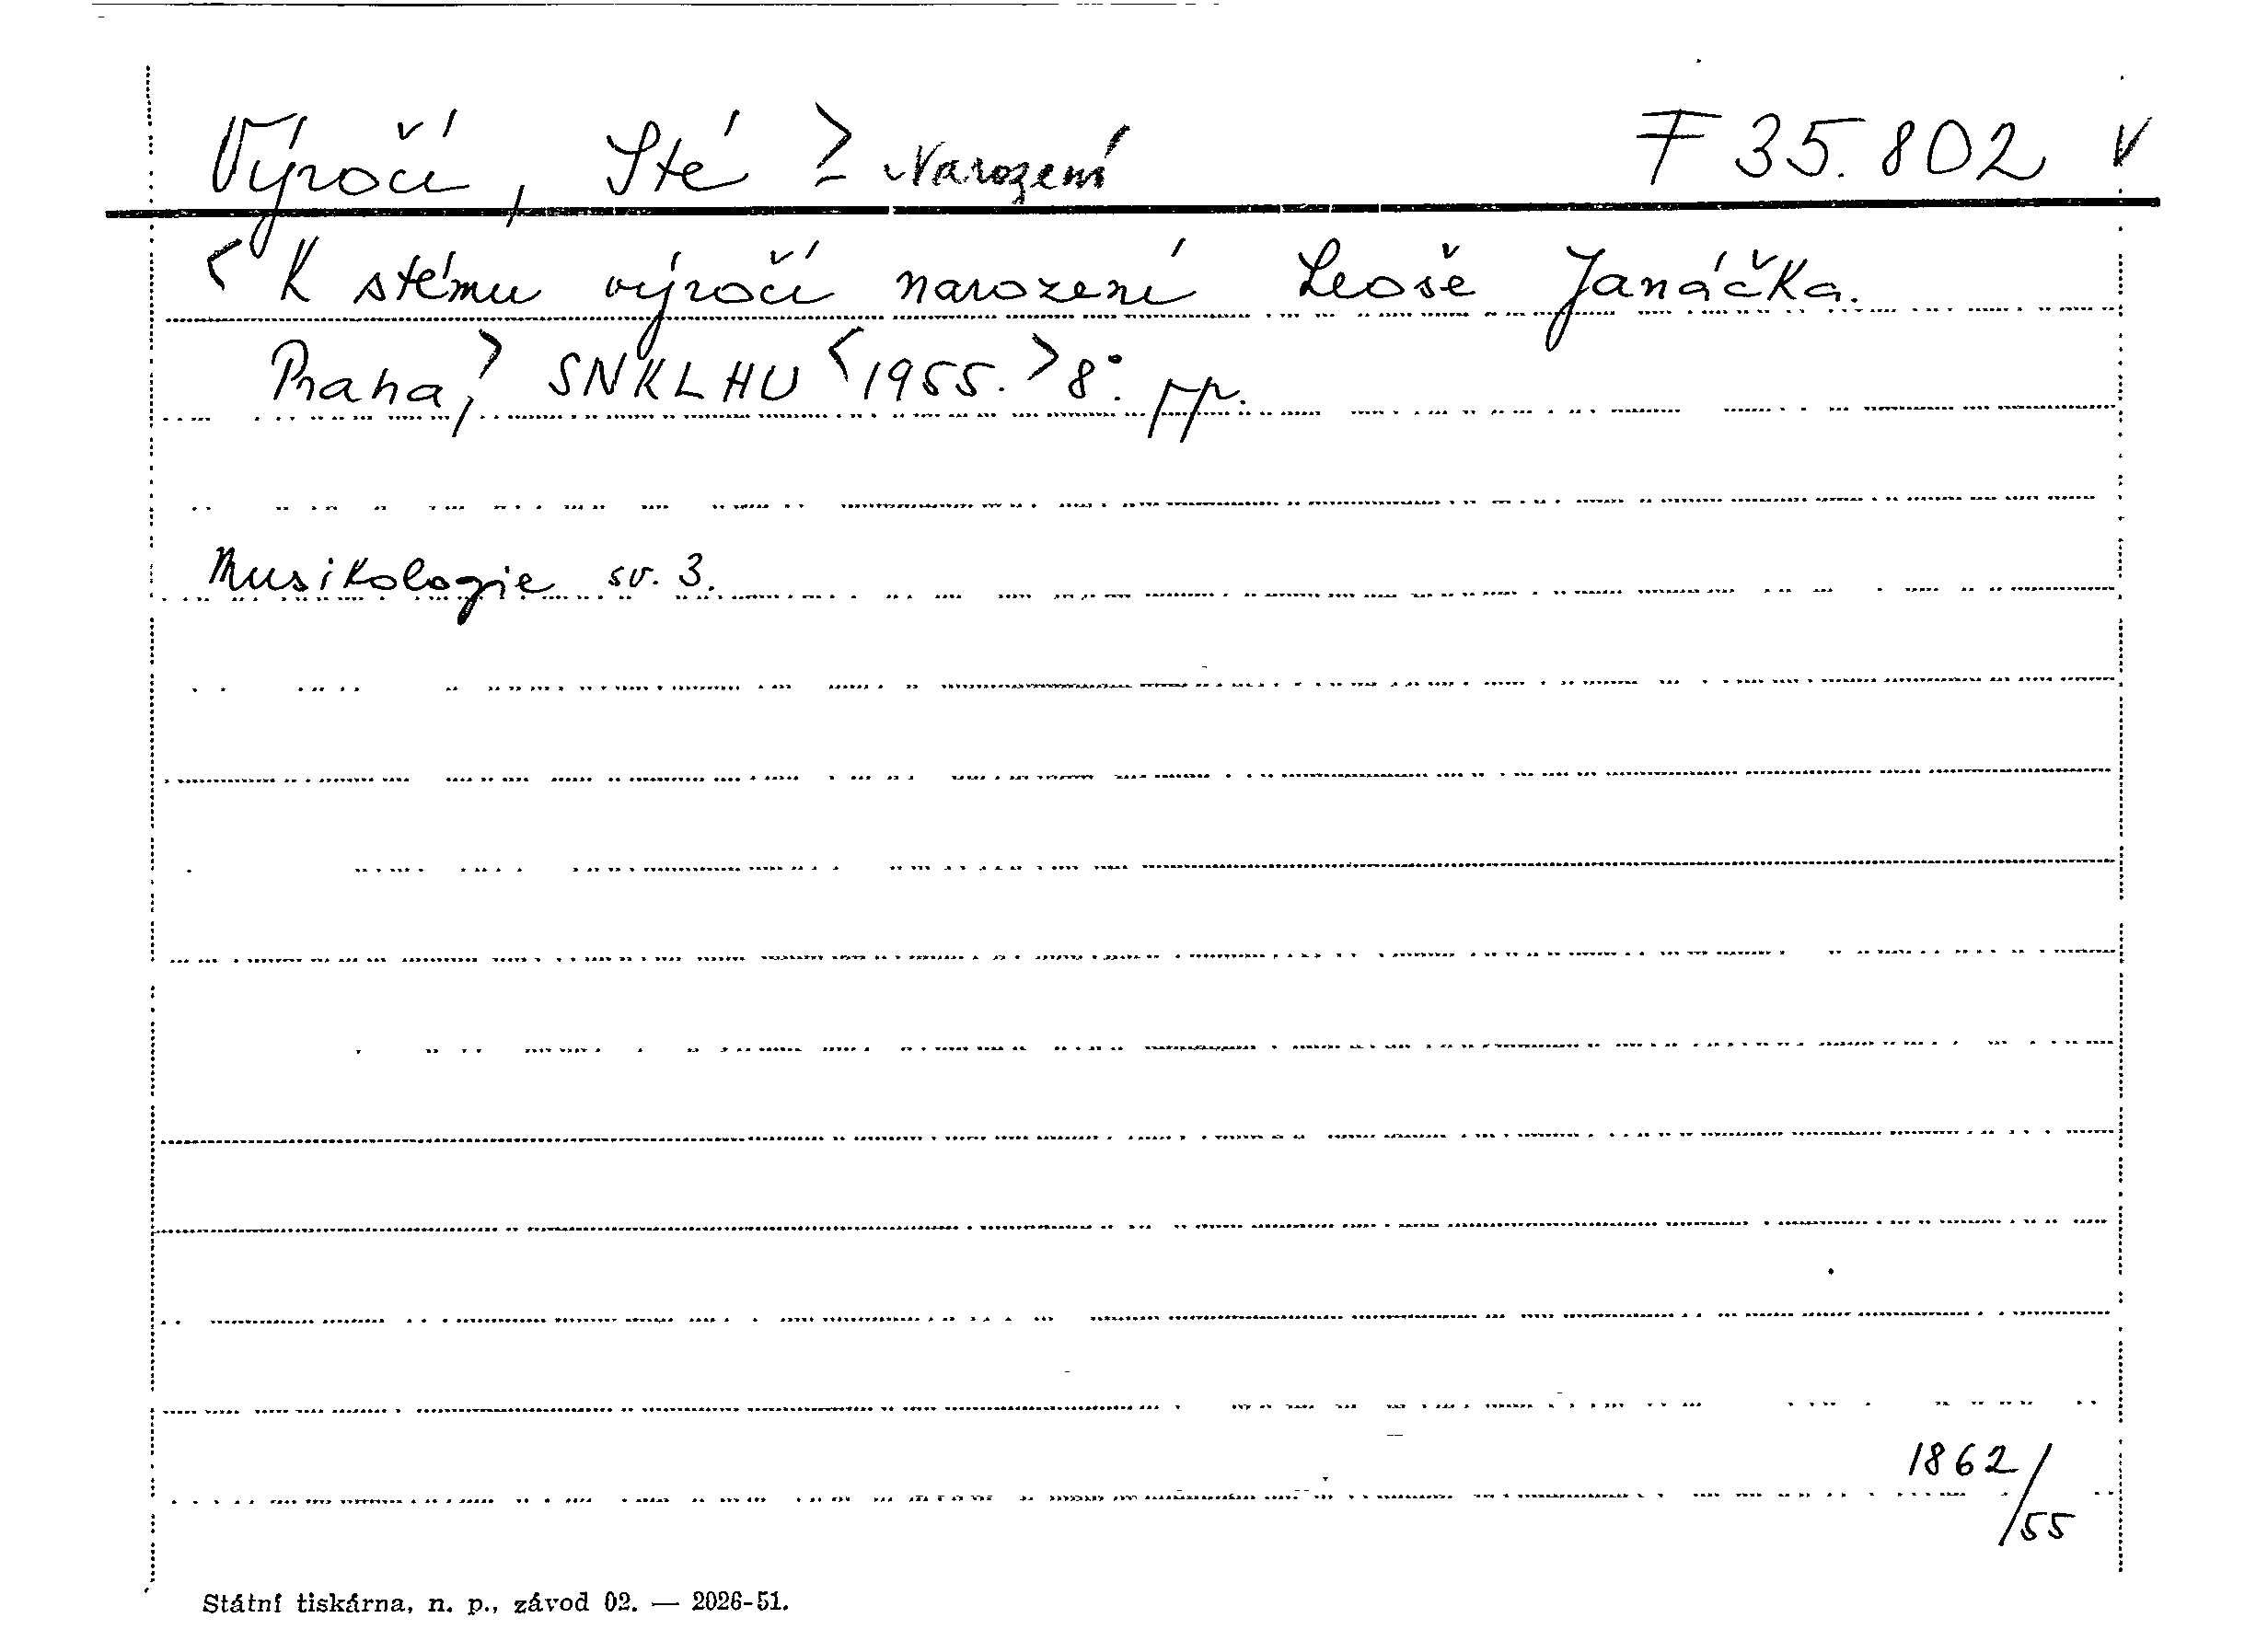 Výročí, Sté > - Narození F 35.802 V
< K stému výročí narození Leoše Janáčka.
Praha,> SNKLHU <1955.> 8°. pp.
Musikologie sv. 3.
1862/55
Státní tiskárna, n. p., závod 02. — 2026-51.